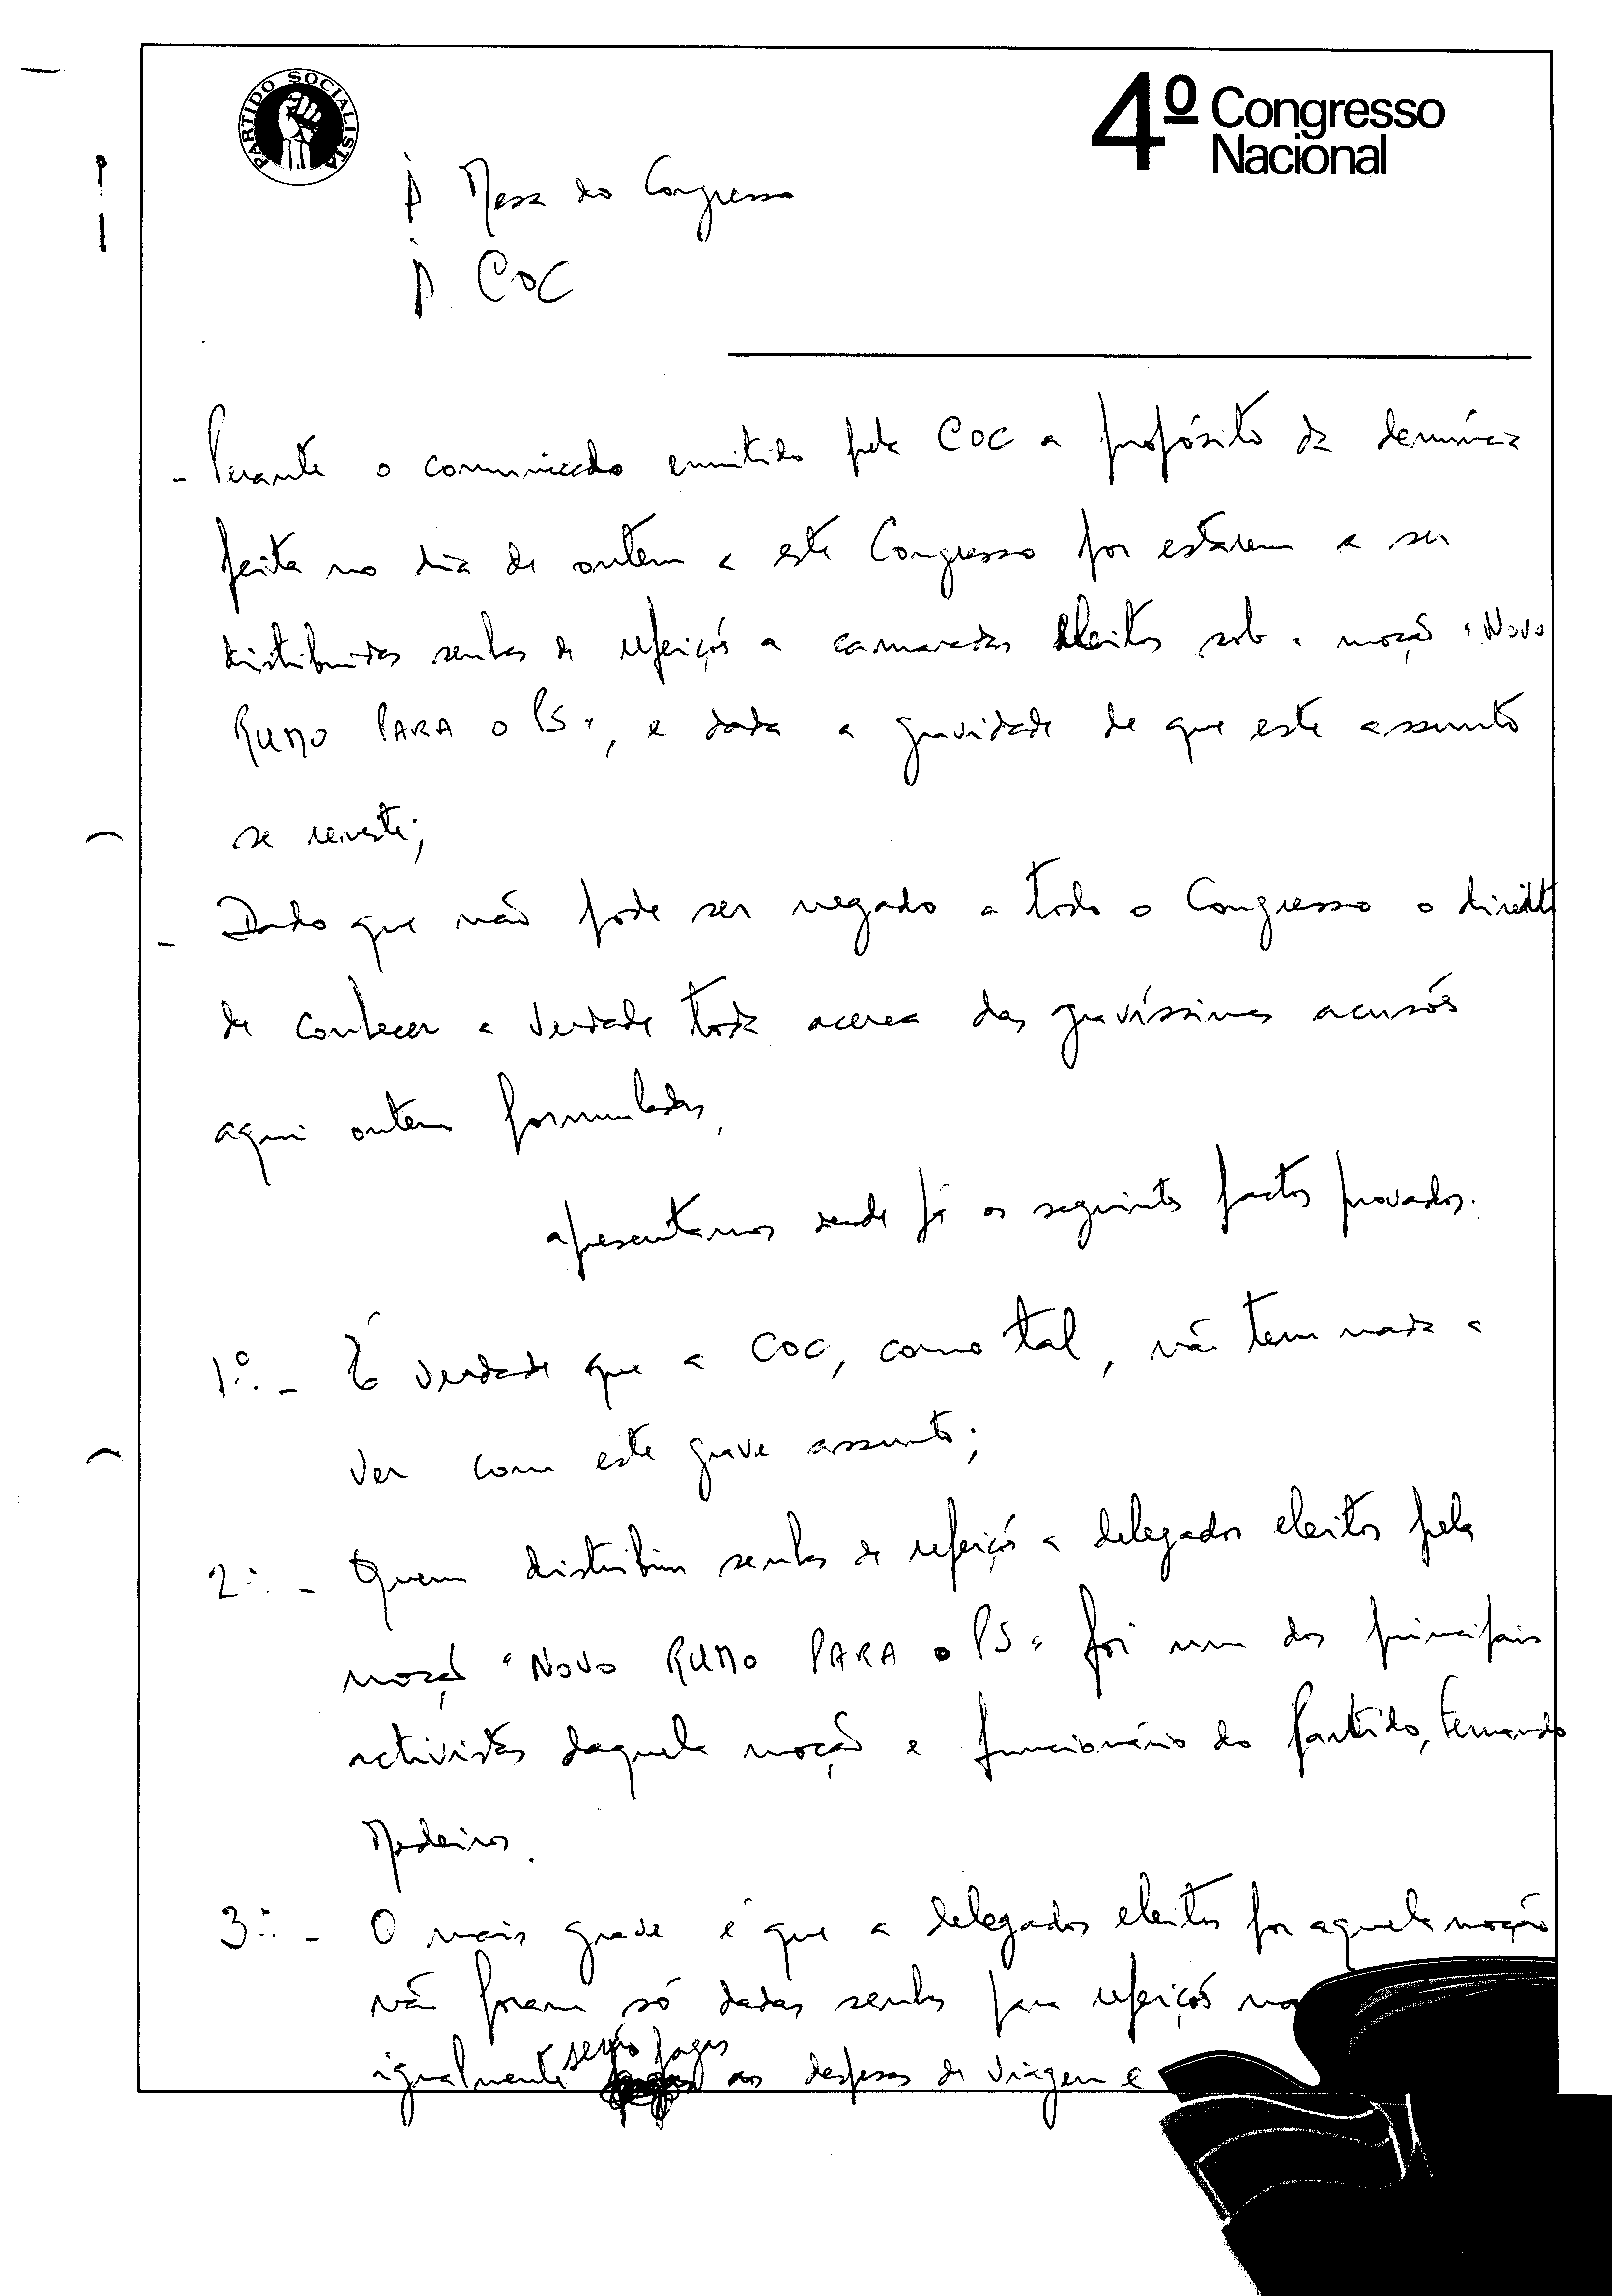 PARTIDO SOCIALISTA
4º Congresso
Nacional
À Mesa do Congresso
À COC
- Perante o comunicado emitido pela COC a propósito da denúncia
feita no dia de ontem a este Congresso por estarem a ser
distribuidas senhas de refeições a camaradas eleitos sob a moção "NOVO
RUMO PARA O PS", e dada a gravidade de que este assunto
se reveste;
- Dado que não pode ser negado a todo o Congresso o direito
de conhecer a verdade toda acerca das gravíssimas acusações
aqui ontem formuladas,
apresentamos desde já os seguintes factos provados:
1º. - É verdade que a COC, como tal, não tem nada a
ver com este grave assunto;
2º. - Quem distribuiu senhas de refeição a delegados eleitos pela
moção "NOVO RUMO PARA O PS" foi um dos principais
activistas daquela moção e funcionário do Partido, Fernando
Medeiros.
3º. - O mais grave é que a delegados eleitos por aquela moção
não foram só dadas senhas para refeições
igualmente serão pagas as despesas de viagem e